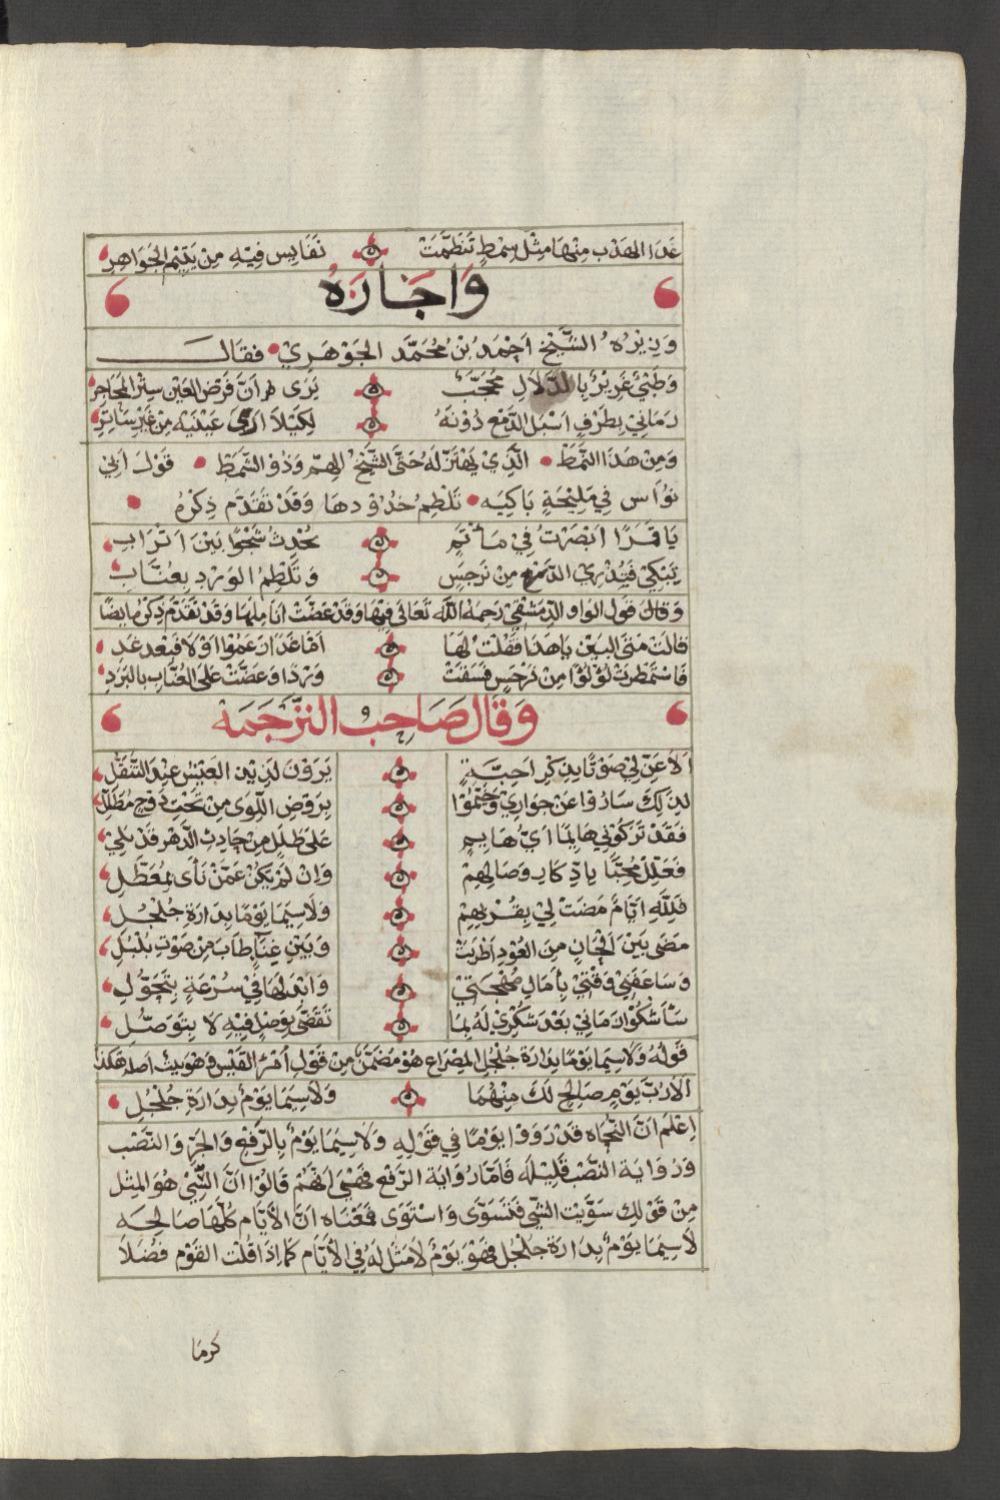 غَدَا الهدْب مِنْهَا مِثْلَ سِمْطٍ تَنَظَّمَتْ نَفَايِس فِيْهِ مِنْ يَتِيْمِ الجَوَاهِرِ
وَاجَازَهُ
وَزِيْرُهُ الشَّيْخ اَحْمَد بْنُ مُحَمَّد الجَوْهَرِيْ فقالــ
وَظَبْيٌ غَرِيْرٌ بِالدَّلَالِ مُحَجَّبٌ يَرَى اَنَّ فَرْضَ العَيْن سِتْرُ المَحَاجِرِ
رَمَانِيْ بِطَرْفٍ اَسْبَلَ الدَّمْعَ دُوْنَهُ لِكَيْلَا اَرَى عَيْنَيْهِ مِنْ غَيْرِ سَاتِرِ
وَمِنْ هَذَا النَّمَطْ الَّذِيْ يَهْتَزُّ لَهُ حَتَّى الشَّيْخُ الهِمّ وَذُو الشَّمَطْ قَوْلَ اَبِيْ
نُوَاس فِيْ مَلِيْحَةٍ بَاكِيَه تَلْطِمُ خُدُوْدهَا وَقَدْ تَقَدَّم ذِكْرُهُ
يَا قَمَرًا اَبْصَرْتُ فِيْ مَأتَمٍ شَجْوًا بَيْنَ اَتْرَابِ
يَبْكِيْ فَيُذْرِي الدَّمْع مِنْ نَرْجِسٍ وَتَلْطِمُ الوَرْد بِعُنَّابِ
وَقَالَ قَول الوَاوِ الدِّمَشْقِيْ رَحِمَهُ اللّٰه تَعَالَى فِيْهَا وَقَدْ عَضَّتْ اَنَامِلِهَا وَقَدْ تَقَدَّمَ ذِكْرُهُ ايضًا
قَالَتْ مَتَى البَيْن يَا هَذَا فَقُلْت لَهَا اَمَّا غَدًا زَعَمُوْا اَوْ لَا فَبَعْد غَدِ
فَاسْتَمْطَرَتْ لُؤْلُؤًا مِنْ نَرْجِسٍ فَسَقَتْ وَرْدًا وَعَضَّتْ عَلَى العُنَّابِ بِالبَرَدِ
وَقَالَ صَاحِب التَّرْجَمَهْ
اَلَا غَنِّ لِيْ صَوْتًا بِذِكْرِ اَحِبَّةٍ يَرَوْنَ لَذِيْذِ العَيْش عِنْدَ التَّنَقُّلِ
لِذَلِكَ سَارُوْا عَنْ جِوَارِيْ وَخَيَّمُوْا بِرَوْضِ اللِّوَى مِنْ تَحْتِ دَوْحٍ مُظَلِّلِ
فَقَدْ تَرَكُوْنِيْ هَايِمًا اَيَّ هَايِمٍ عَلَى طَلَلٍ مِنْ حَادِثِ الدَّهْر قَدْ بَلِيْ
فَعَلِّلْ مُحِبًّا بِادِّكَارِ وِصَالِهِمْ وَاِنْ لَمْ يَكُنْ عَمَّنْ نَأى بِمُعَطَّلِ
فَلِلّهِ اَيَّامٌ مَضَتْ لِيْ بِقُرْبِهِمْ وَلَا سِيَّمَا يَوْمًا بِدَارَةِ جُلْجُلِ
مَضَى بَيْنَ اَلْحَانٍ مِنَ العُوْدِ اَطْرَبَتْ وَبَيْنِ غِنًا طَابَ مِنْ صَوْتِ بُلْبُلِ
وَسَاعَفَنِيْ وَقْتِيْ بِأمَالِ مُهْجَتِيْ وَابْدَلَهَا فِيْ سُرْعَةٍ بِتَحَوُّلِ
سَأشْكُوْ زَمَانِيْ بَعْدَ شُكْرِيْ لَهُ بِمَا تَقَضَّى بِوَصْلٍ فِيْهِ لَا بِتَوَصُّلِ
قَولُهُ وَلَاسِيَّمَا يَوْمًا بِدَارَةِ جُلْجُلِ المِصْرَاع هُوَ مُضَمَّنٌ مِنْ قَوْلِ امْرِئ القَيْس وَهْوَ بيتٌ اصلُه هَكَذَا
اَلَا رُبَّ يَوْمٍ صَالِحٍ لَكَ مِنْهُمَا وَلَاسِيَّمَا يَوْمٌ بِدَارَةِ جُلْجُلِ
اِعْلَمْ اَنَّ النُّحَاه قَدْ رَوَوْا يَوْمًا فِي قَوْلِهِ وَلَاسِيَّمَا يَوْمٌ بِالرَّفْعِ وَالجَرِّ وَالنَّصْب
وَرِوَايَة النَّصْب قَلِيْلَه فَامَّا رُوَايَة الرَّفْع فَهْيَ اَنَّهُمْ قَالُوْا اَنَّ السِّيَّ هُوَ المِثْل
مِنْ قَوْلِكَ سَوَّيْت الشَّي فَتَسَوَّى وَاسْتَوَى فَمَعْنَاه اَنَّ الأَيَّام كُلَّهَا صَالِحَه
لَاسِيَّمَا يَوْمٌ بِدَارَة جُلْجُل فَهْوَ يَوْمٌ لَا مِثْل لَهُ فِي الأَيَّام كَمَا اِذَا قُلْت القَوْم فُضَلَا
كرما